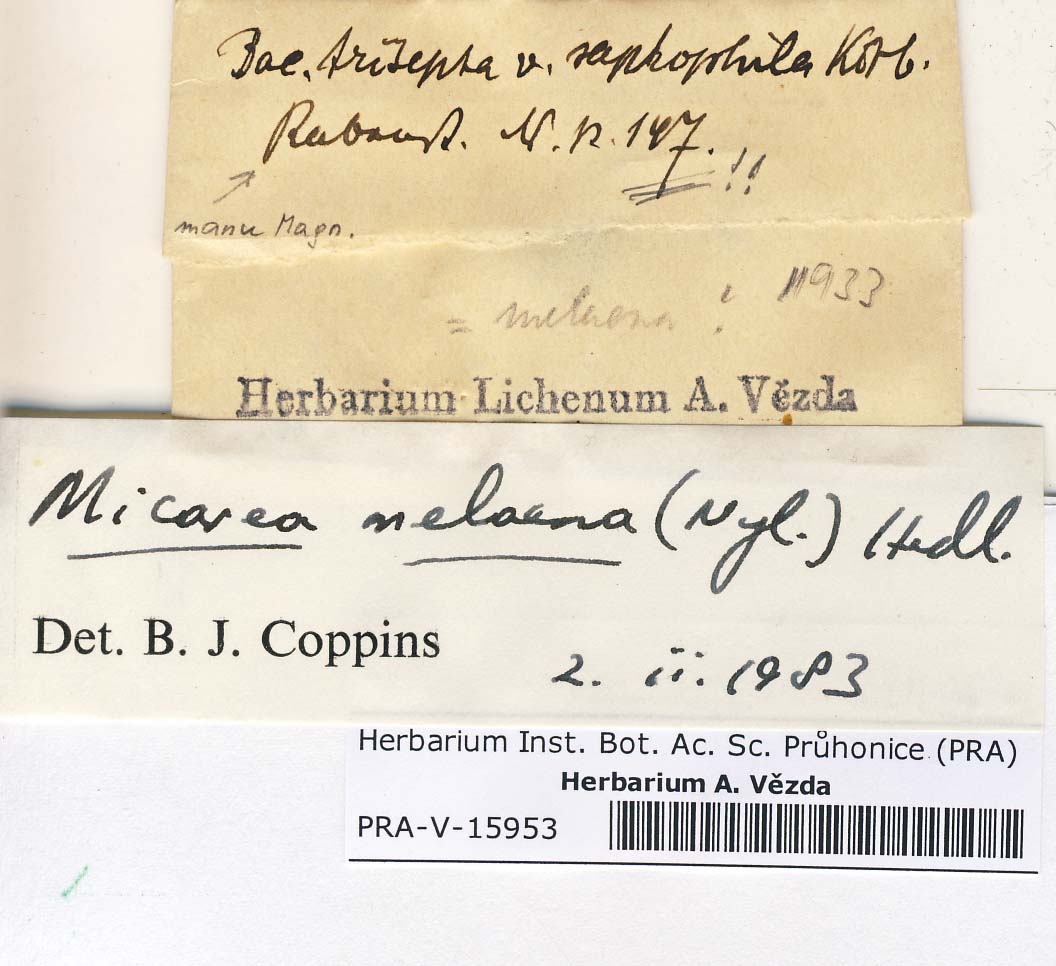 Bac. trisepta v. saprophila Körb.
Rabenh. N. n. 147. !!
manu Magn.
= melaena ! 933
Herbarium Lichenum A. Vězda
Micarea melaena (Nyl.) Hedl.
Det. B. J. Coppins 2. ii. 1983
Herbarium Inst. Bot. Ac. Sc. Průhonice (PRA)
Herbarium A. Vězda
PRA-V-15953